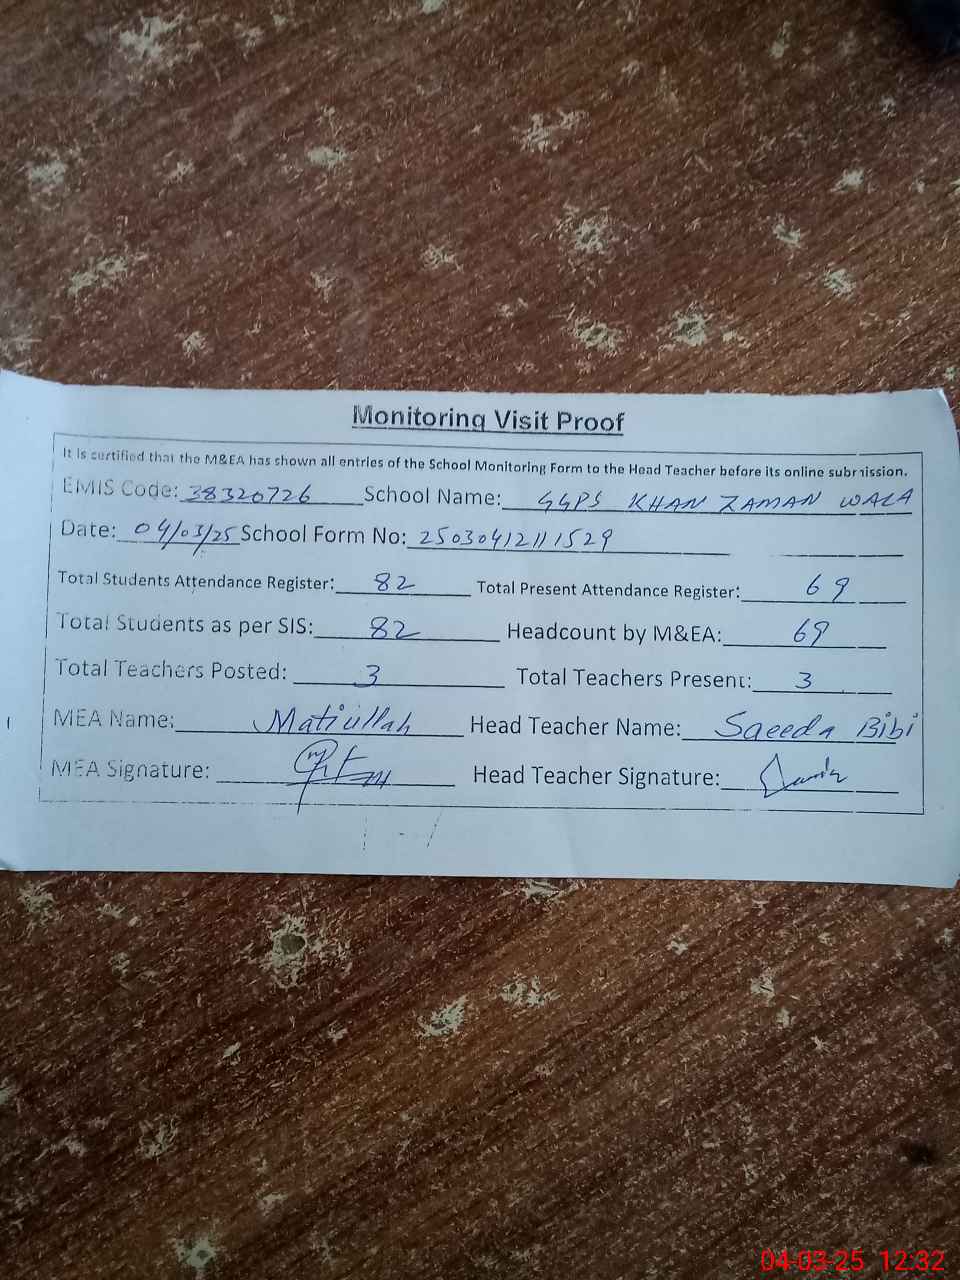 Monitoring Visit Proof
It is certified that the M&EA has shown all entries of the School Monitoring Form to the Head Teacher before its online submission.
EMIS Code: 38320726 School Name: GGPS KHAN ZAMAN WALA
Date: 04/03/25 School Form No: 25030412111529
Total Students Attendance Register: 82 Total Present Attendance Register: 69
Total Students as per SIS: 82 Headcount by M&EA: 69
Total Teachers Posted: 3 Total Teachers Present: 3
MEA Name: Matiullah Head Teacher Name: Saeeda Bibi
MEA Signature: Head Teacher Signature:
04-03-25 12:32